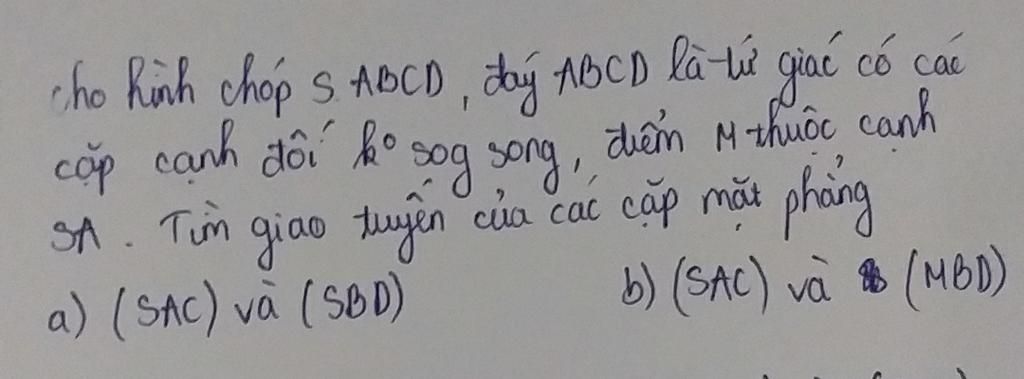 cho hình chóp S.ABCD, đáy ABCD là tứ giác có các
cặp cạnh đối ko sog song, điểm M thuộc cạnh
SA. Tìm giao tuyến của các cặp mặt phẳng
a) (SAC) và (SBD) b) (SAC) và (MBD)